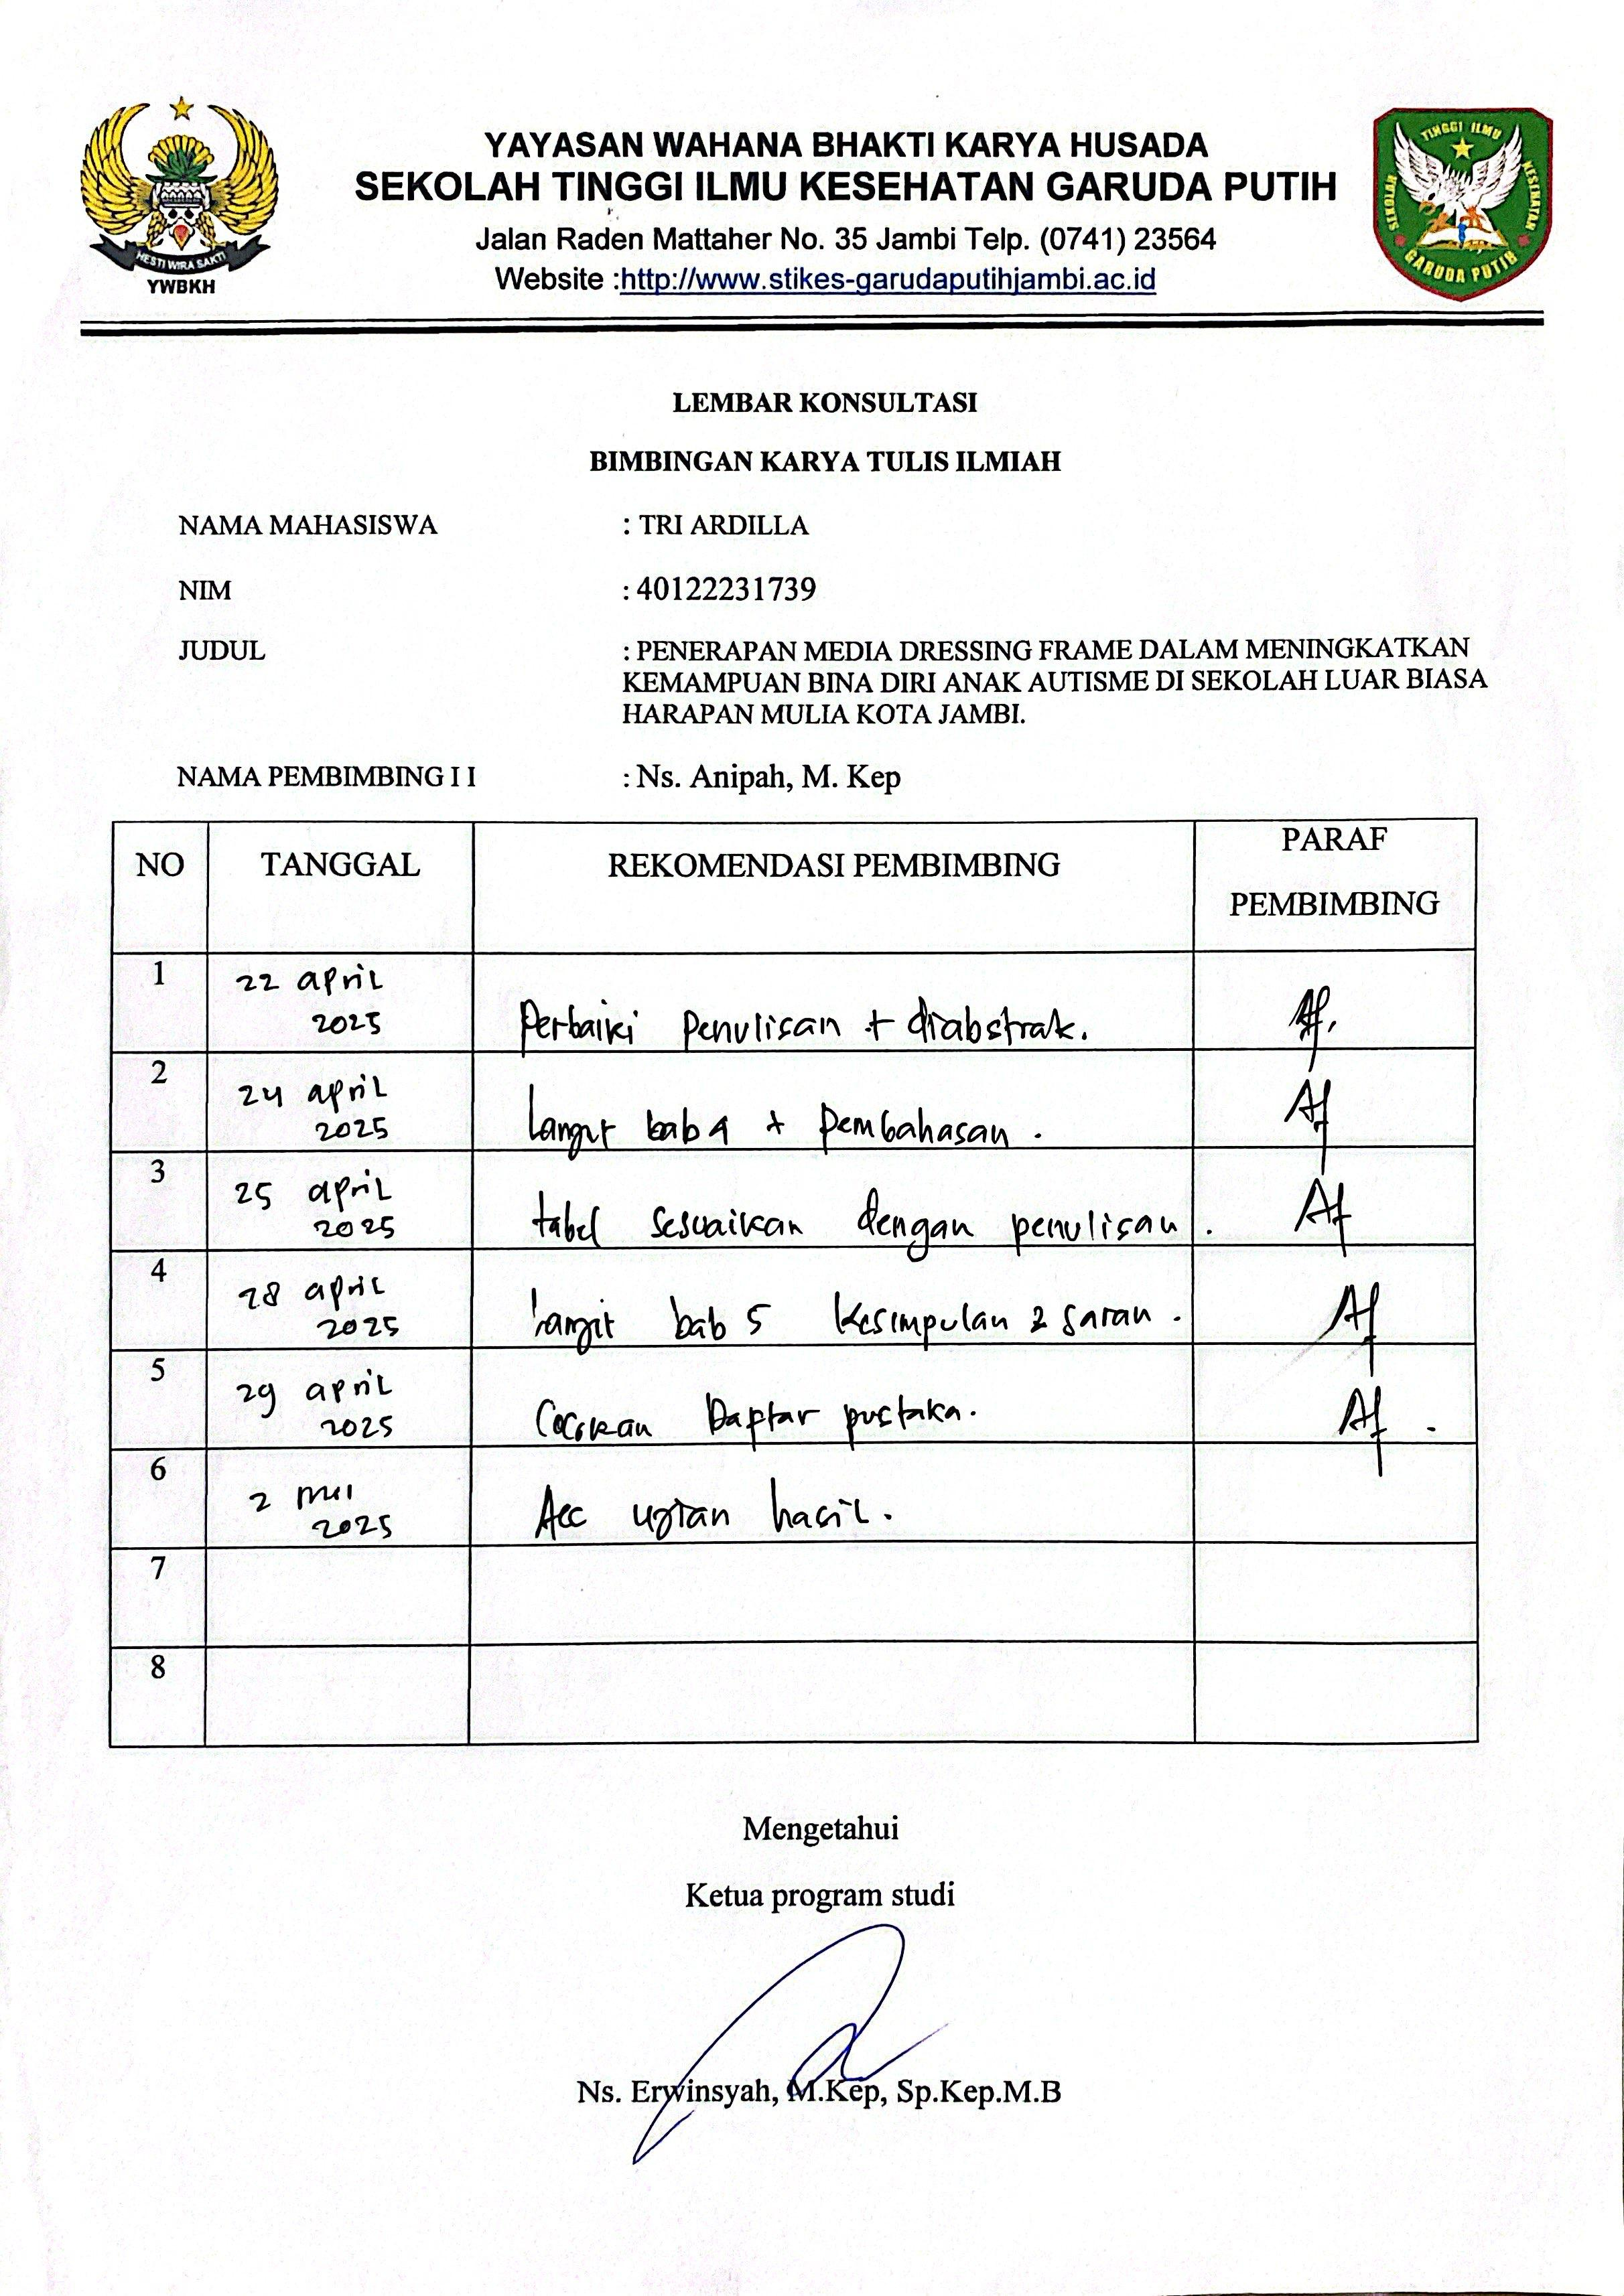 HESTI WIRA SAKTI
YWBKH
YAYASAN WAHANA BHAKTI KARYA HUSADA
SEKOLAH TINGGI ILMU KESEHATAN GARUDA PUTIH
Jalan Raden Mattaher No. 35 Jambi Telp. (0741) 23564
Website :http://www.stikes-garudaputihjambi.ac.id
SEKOLAH TINGGI ILMU KESEHATAN
GARUDA PUTIH
LEMBAR KONSULTASI
BIMBINGAN KARYA TULIS ILMIAH
NAMA MAHASISWA : TRI ARDILLA
NIM : 40122231739
JUDUL : PENERAPAN MEDIA DRESSING FRAME DALAM MENINGKATKAN
KEMAMPUAN BINA DIRI ANAK AUTISME DI SEKOLAH LUAR BIASA
HARAPAN MULIA KOTA JAMBI.
NAMA PEMBIMBING I I : Ns. Anipah, M. Kep
NO TANGGAL REKOMENDASI PEMBIMBING PARAF
PEMBIMBING
1 22 april
2025 Perbaiki penulisan + diabstrak.
2 24 april
2025 bab 4 + pembahasan.
3 25 april
2025 tabel sesuaikan dengan penulisan.
4 28 april
2025 bab 5 kesimpulan & saran.
5 29 april
2025 Daptar pustaka.
6 2 mei
2025 Acc ujian hasil.
7
8
Mengetahui
Ketua program studi
Ns. Erwinsyah, M.Kep, Sp.Kep.M.B